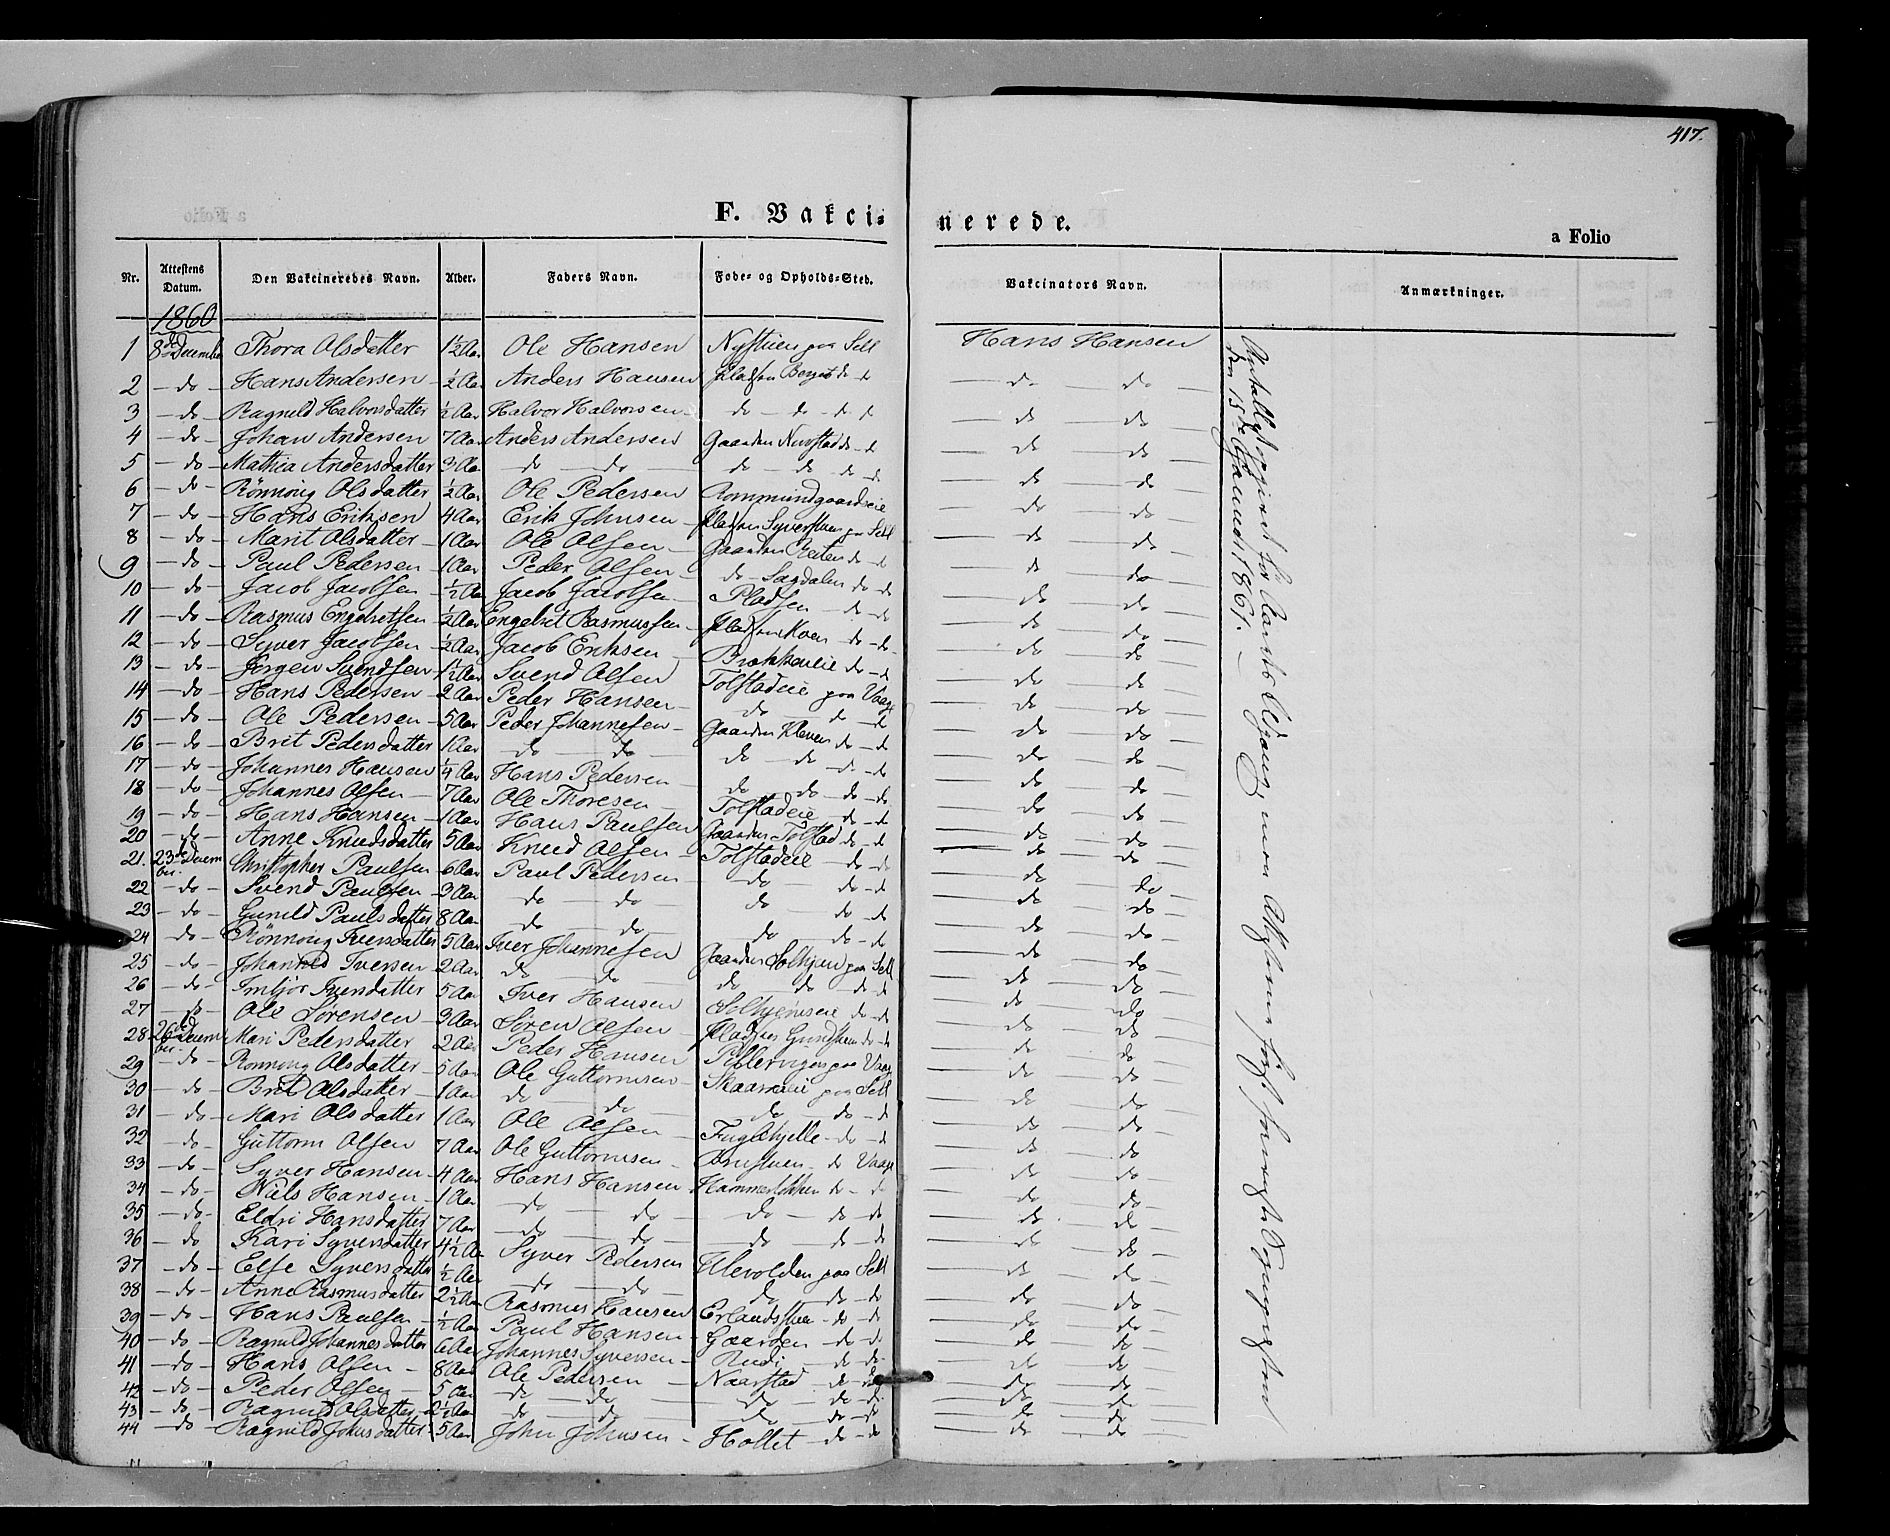 417.
F. Vakcinerede.
a Folio
Nr. Attestens Datum. Den Vakcineredes Navn. Alder. Faders Navn. Føde- og Opholds-Sted. Vakcinators Navn. Anmærkninger.
1860
1 8de December Thora Olsdatter 1½ Aar Ole Hansen Nystuen paa Sell Hans Hansen
2 - do - Hans Andersen ½ Aar Anders Hansen Pladsen Berget do - d do do
3 - do - Ragnild Halvorsdatter ½ Aar Halvor Halvorsen do - do - d d do do
4 - do - Johan Andersen 7 Aar Anders Andersen Gaarden do - d do do
5 - do - Mathea Andersdatter 3 Aar do do do - do do - d do do
6 - do - Rönnoug Olsdatter ½ Aar Ole Pedersen Rommundgaardseie do do
7 - do - Hans Eriksen 4 Aar Erik Johnsen Pladsen Syverstuen paa Sell do do
8 - do - Marit Olsdatter 1 Aar Ole Olsen Gaarden do - d do do
9 - do - Paul Pedersen 1 Aar Peder Olsen do - Sagdalen do - do do do
10 - do - Jacob Jacobsen ½ Aar Jacob Jacobsen Pladsen do - do do do
11 - do - Rasmus Engebretsen ½ Aar Engebret Rasmussen Pladsen do - do do do
12 - do - Syver Jacobsen ½ Aar Jacob Eriksen Brækkeneie do - d do do
13 - do - Jørgen Svendsen 1½ Aar Svend Olsen Tolstadeie paa Vaage do do
14 - do - Hans Pedersen 2 Aar Peder Hansen do do - d do do
15 - do - Ole Pedersen 5 Aar Peder Johannesen Gaarden Kleven do - d do do
16 - do - Brit Pedersdatter 1 Aar do do do - do - do - do do do
17 - do - Johannes Hansen ¼ Aar Hans Pedersen do do - do - do do do
18 - do - Johannes Olsen 7 Aar Ole Thoresen Tolstadeie do - d do do
19 - do - Hans Hansen 1 Aar Hans Paulsen Gaarden Tolstad do - d do do
20 - do - Anne Knudsdatter 5 Aar Knud Olsen Tolstadeie do - do do do
21. 23de December Christopher Paulsen 6 Aar Paul Pedersen do do - d do do
22 - do - Svend Paulsen 3 Aar do do do do - d do do
23 - do - Gunild Paulsdatter 8 Aar do do do do - d do do
24 - do - Rönnoug Iversdatter 5 Aar Iver Johannesen Gaarden Solhjem paa Sell do do
25 - do - Johannes Iversen 2 Aar do do do do do d do do
26 - do - Imbjør Iversdatter 5 Aar Iver Hansen Solhjemseie do - do do do
27 - do - Ole Sörensen 3 Aar Sören Olsen Pladsen do - d do do
28 26de December Mari Pedersdatter 2 Aar Peder Hansen paa Vaage do do
29 - do - Rönnoug Olsdatter 5 Aar Ole Guttormsen Skaareneie paa Sell do do
30 - do - Brit Olsdatter 1 Aar do do do do - d do do
31 - do - Mari Olsdatter 1 Aar Ole Olsen do - d do do
32 - do - Guttorm Olsen 7 Aar Ole Guttormsen do Vaage do do
33 - do - Syver Hansen 4 Aar Hans Hansen Hammeløkken do - do do do
34 - do - Niels Hansen 1 Aar do do do do - do do do
35 - do - Eldri Hansdatter 7 Aar do do do do - d do do
36 - do Kari Syversdatter 4½ Aar Syver Pedersen Ulevolden paa Sell do do
37 - do - Else Syversdatter ½ Aar do do do do - do do do
38 - do - Anne Rasmusdatter 2½ Aar Rasmus Hansen Erlandsstuen do - do do do
39 - do - Hans Paulsen ½ Aar Paul Hansen Gaarden do - do do do
40 - do - Ragnild Johannesdatter 6 Aar Johannes Syversen Rudi do do do do
41 - do - Hans Olsen 8 Aar Ole Pedersen Naarstad do - do do do
42 - do - Peder Olsen 5 Aar do do do do - do do do
43 - do - Ragnild Olsdatter 2½ Aar do do do do - do do do
44 - do - Ragnild Johnsdatter 5 Aar John Johnsen Hollet do - do do do
for
den 15de Januar 1861.